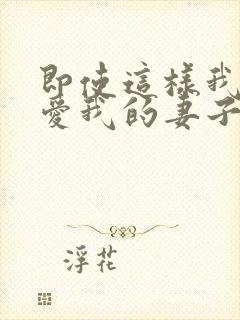 即使這樣我
愛我的妻子
浮花